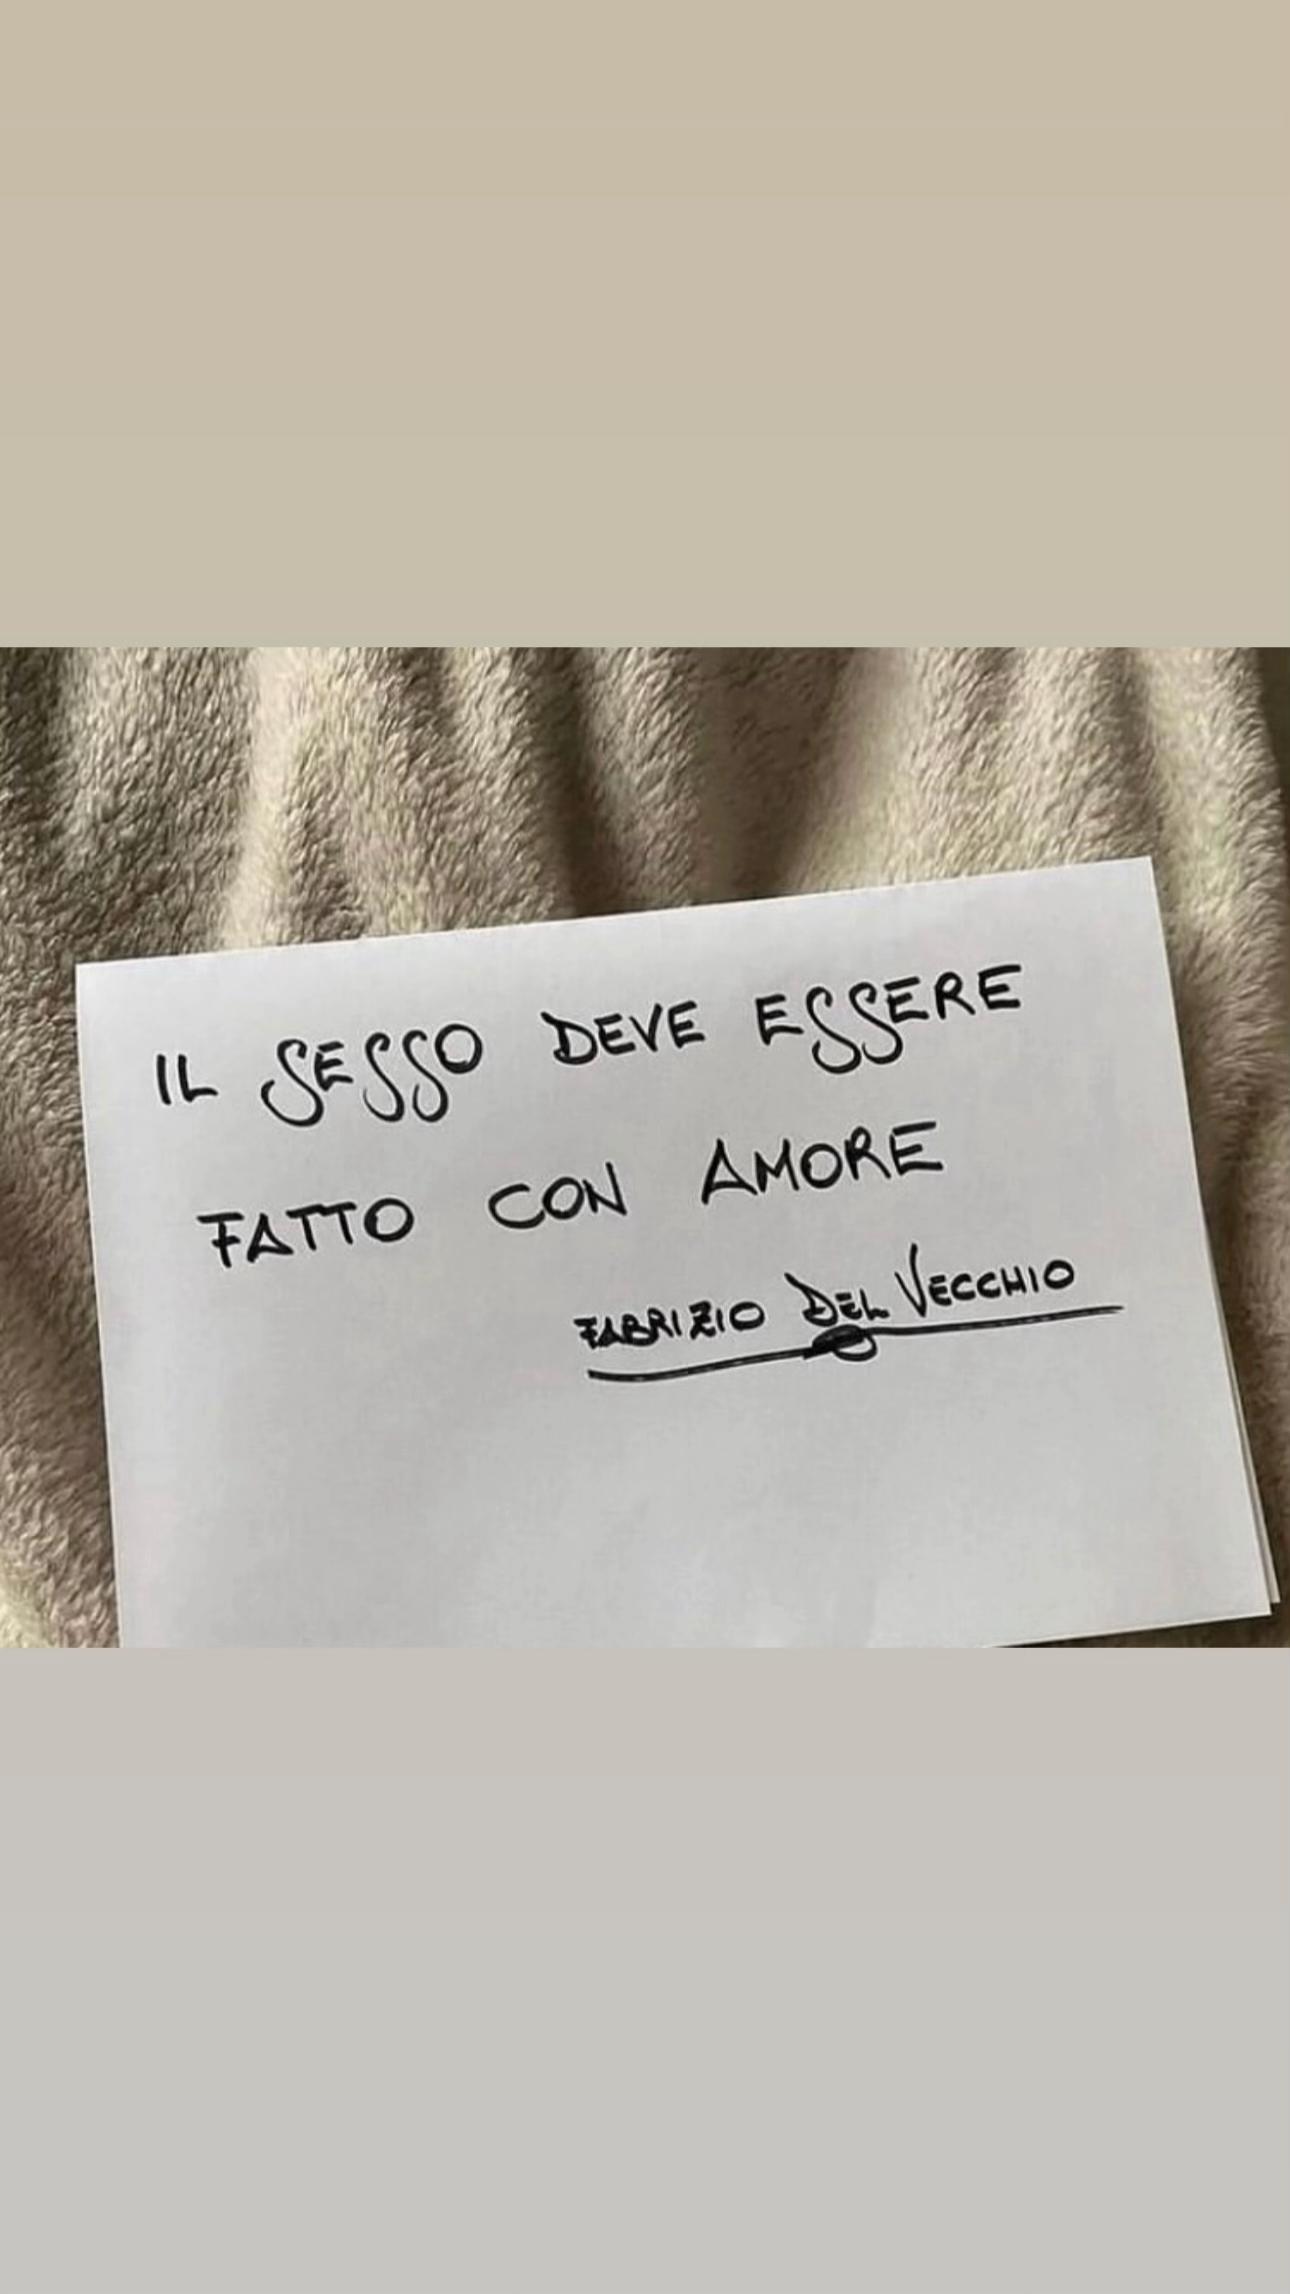 IL SESSO DEVE ESSERE
FATTO CON AMORE
FABRIZIO DEL VECCHIO